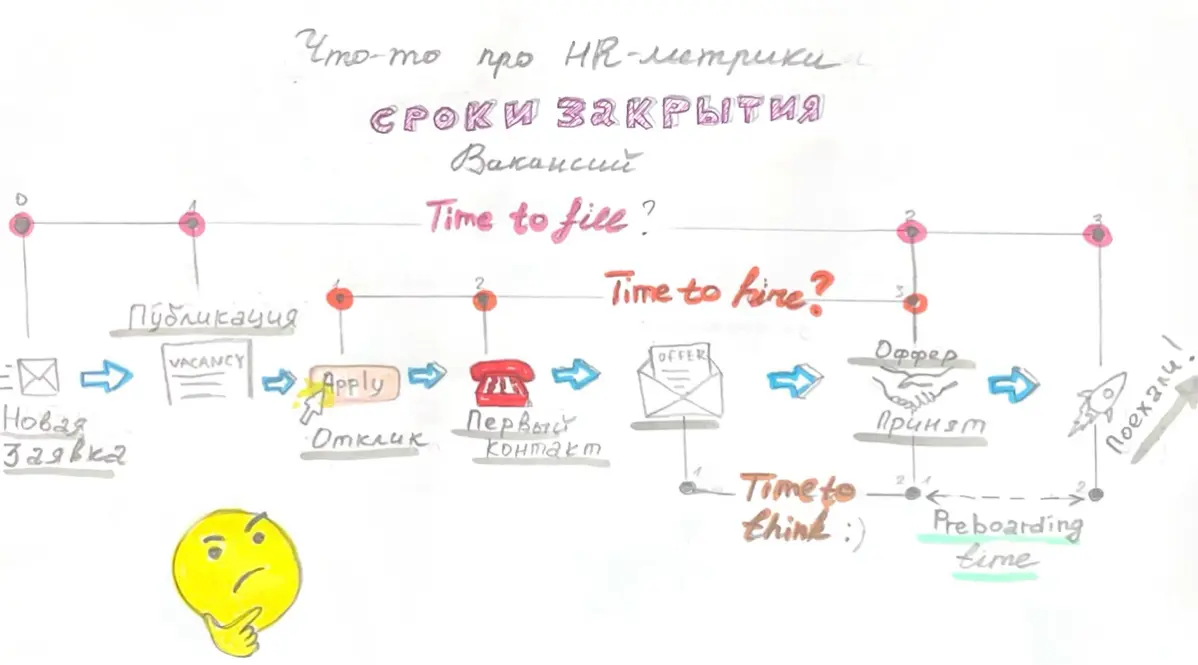 Что-то про HR-метрики
СРОКИ ЗАКРЫТИЯ
Вакансий
0
1
Time to fill?
2
3
1
2
Time to hire?
3
Публикация
VACANCY
Apply
OFFER
Оффер
Принят
Новая
Заявка
Отклик
Первый
контакт
Поехали!
1
Time to
think :)
2
1
2
Preboarding
time